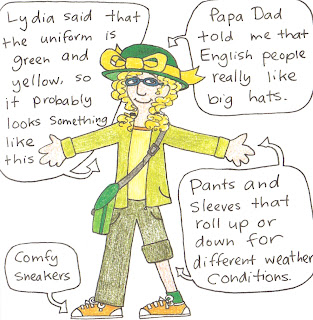 Lydia said that
the uniform is
green and
yellow, so
it probably
looks something
like
this
Papa Dad
told me that
English people
really like
big hats.
Pants and
Sleeves that
roll up or
down for
different weather
Conditions.
Comfy
Sneakers